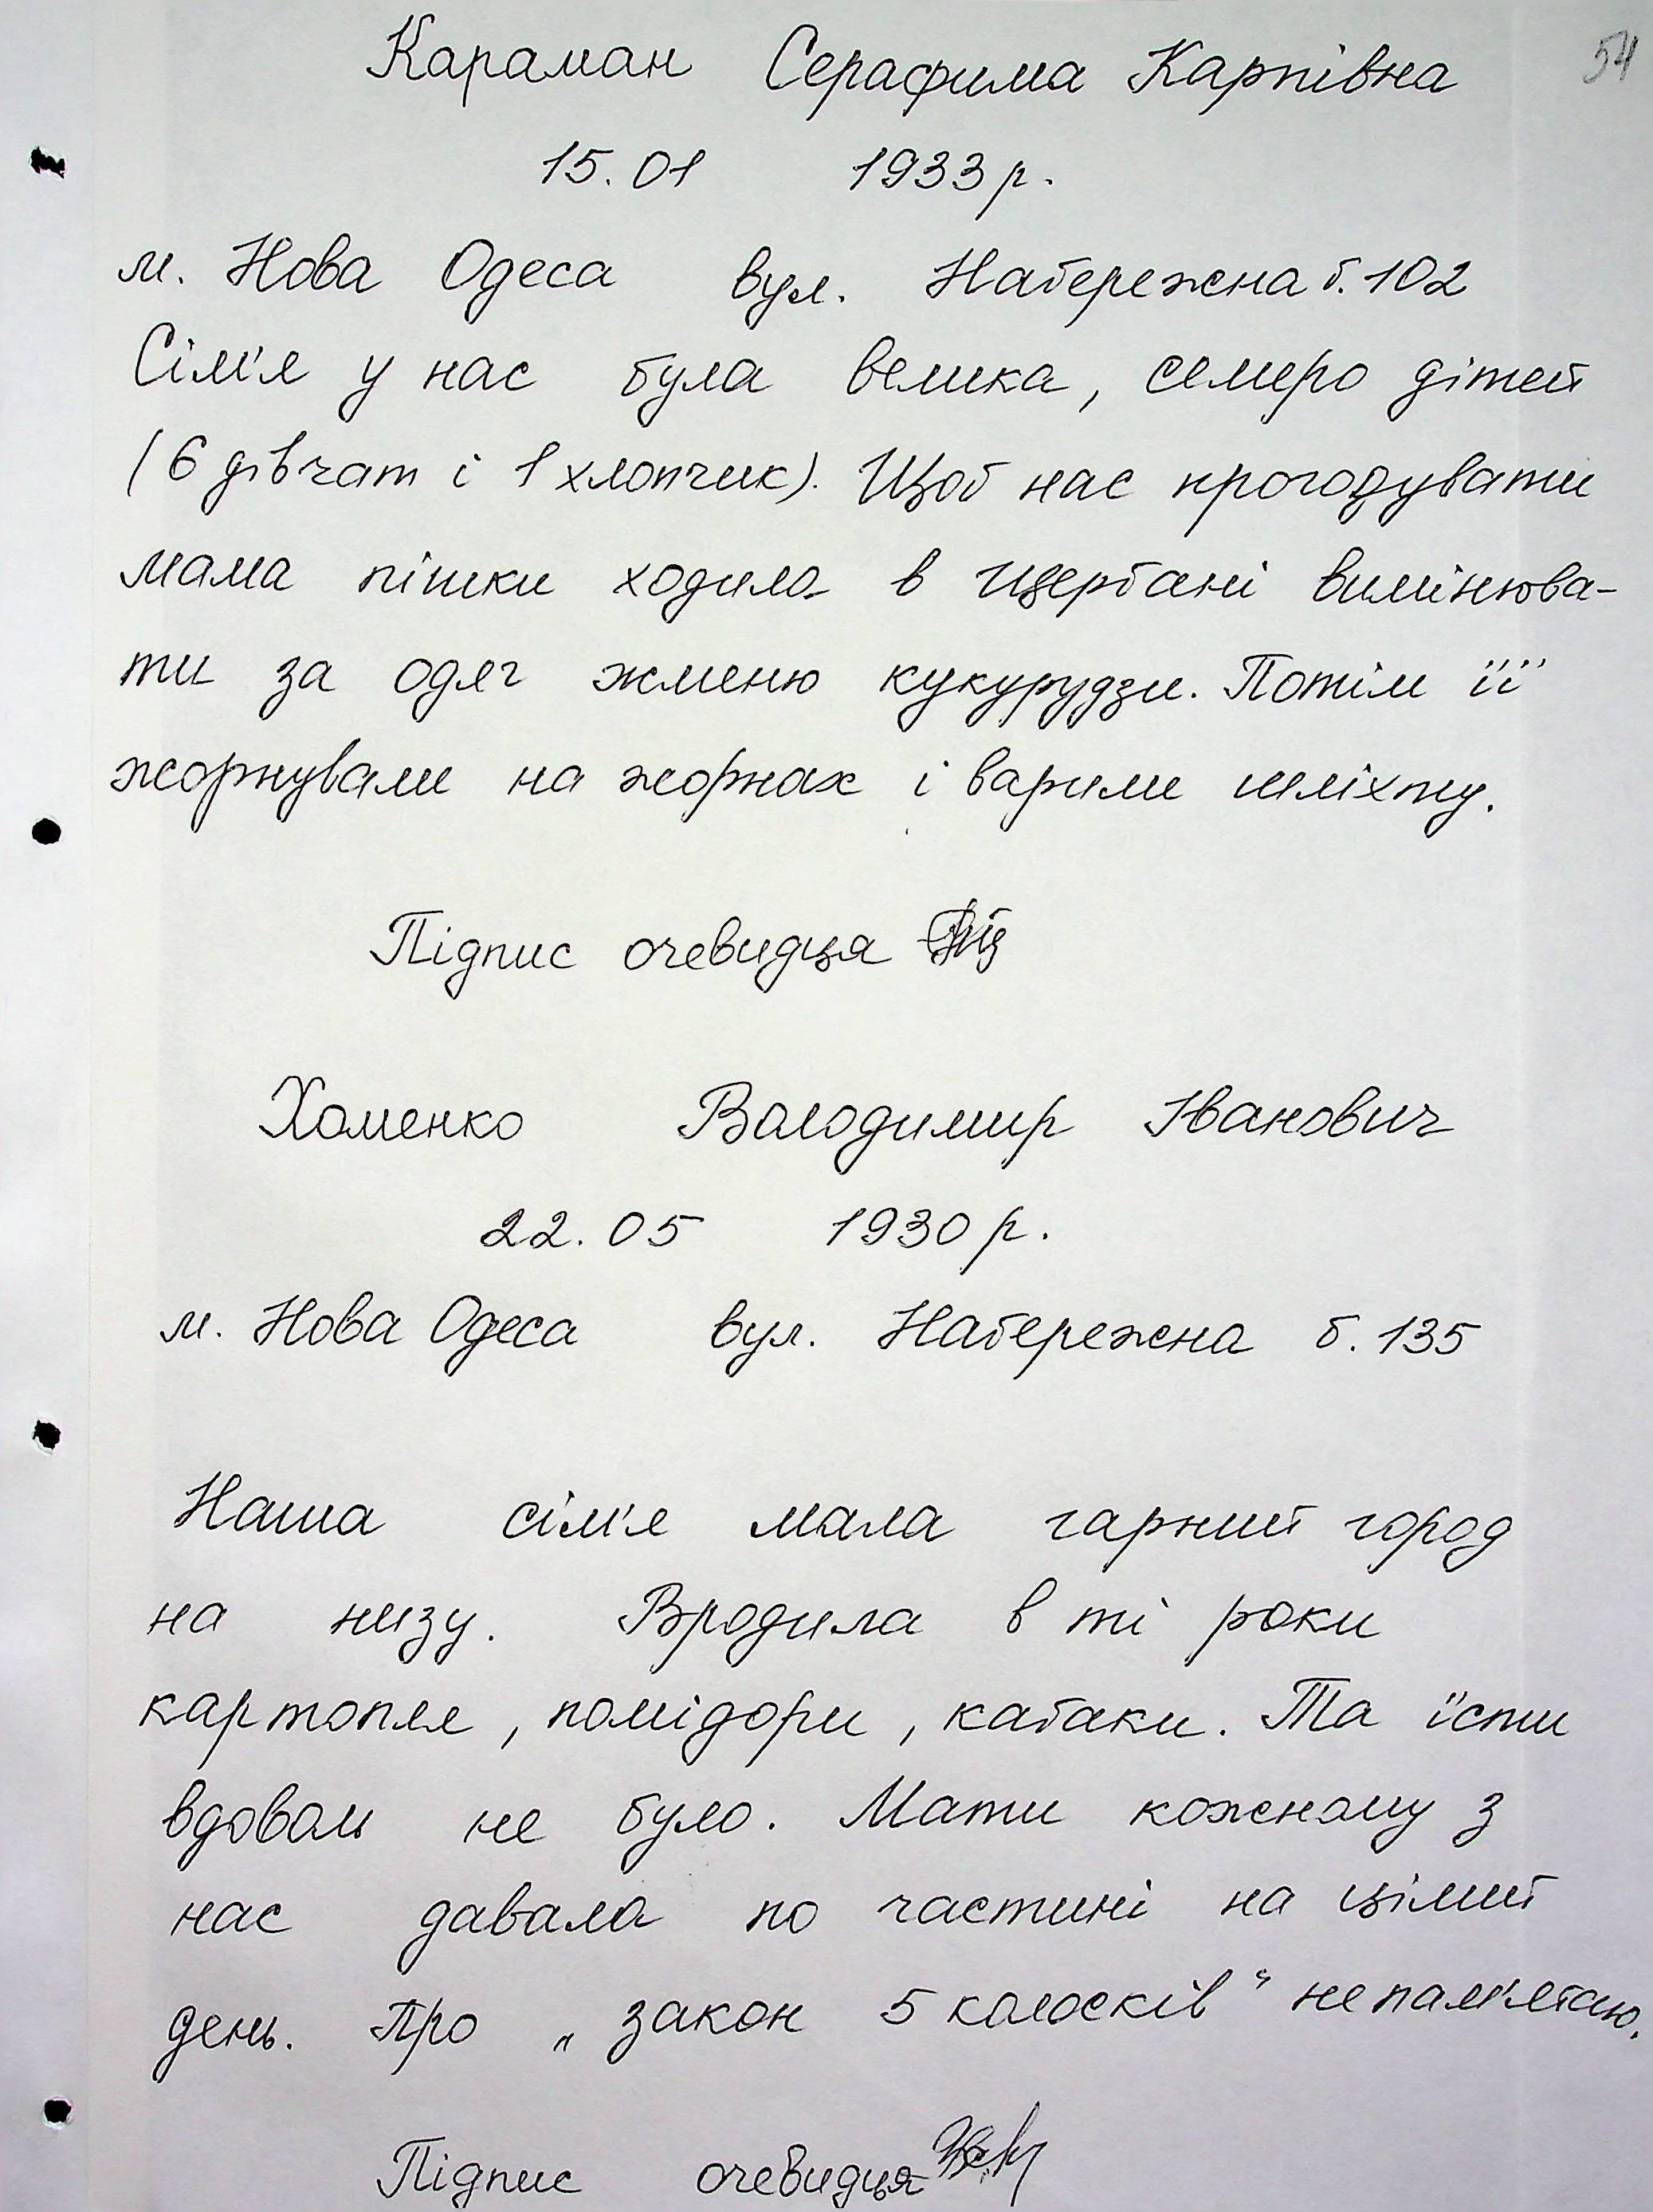 54
Караман Серафима Карпівна
15.01 1933 р.
м. Нова Одеса вул. Набережна б. 102
Сім'я у нас була велика, семеро дітей
(6 дівчат і 1 хлопчик). Щоб нас прогодувати
мама пішки ходила в Щербані вимінюва-
ти за одяг жменю кукурудзи. Потім її
жорнували на жорнах і варили шліхту.
Підпис очевидця
Хоменко Володимир Іванович
22.05 1930 р.
м. Нова Одеса вул. Набережна б. 135
Наша сім'я мала гарний город
на низу. Вродила в ті роки
картопля, помідори, кабаки. Та їсти
вдоволь не було. Мати кожному з
нас давала по частині на цілий
день. Про „закон 5 колосків“ не пам'ятаю.
Підпис очевидця